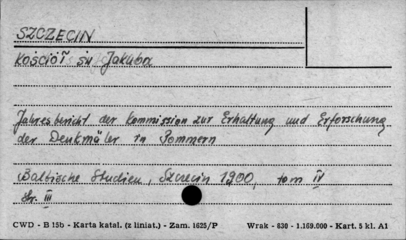 SZCZECIN
Kościół św Jakuba
Jahresbericht der Kommission zur Erhaltung und Erforschung
der Denkmäler in Pommern
Baltische Studien, Szczecin 1900, tom IV
Str. III
CWD - B 15b - Karta katal. (z liniat.) - Zam. 1625/P Wrak - 830 - 1.169.000 - Kart. 5 kl. A1